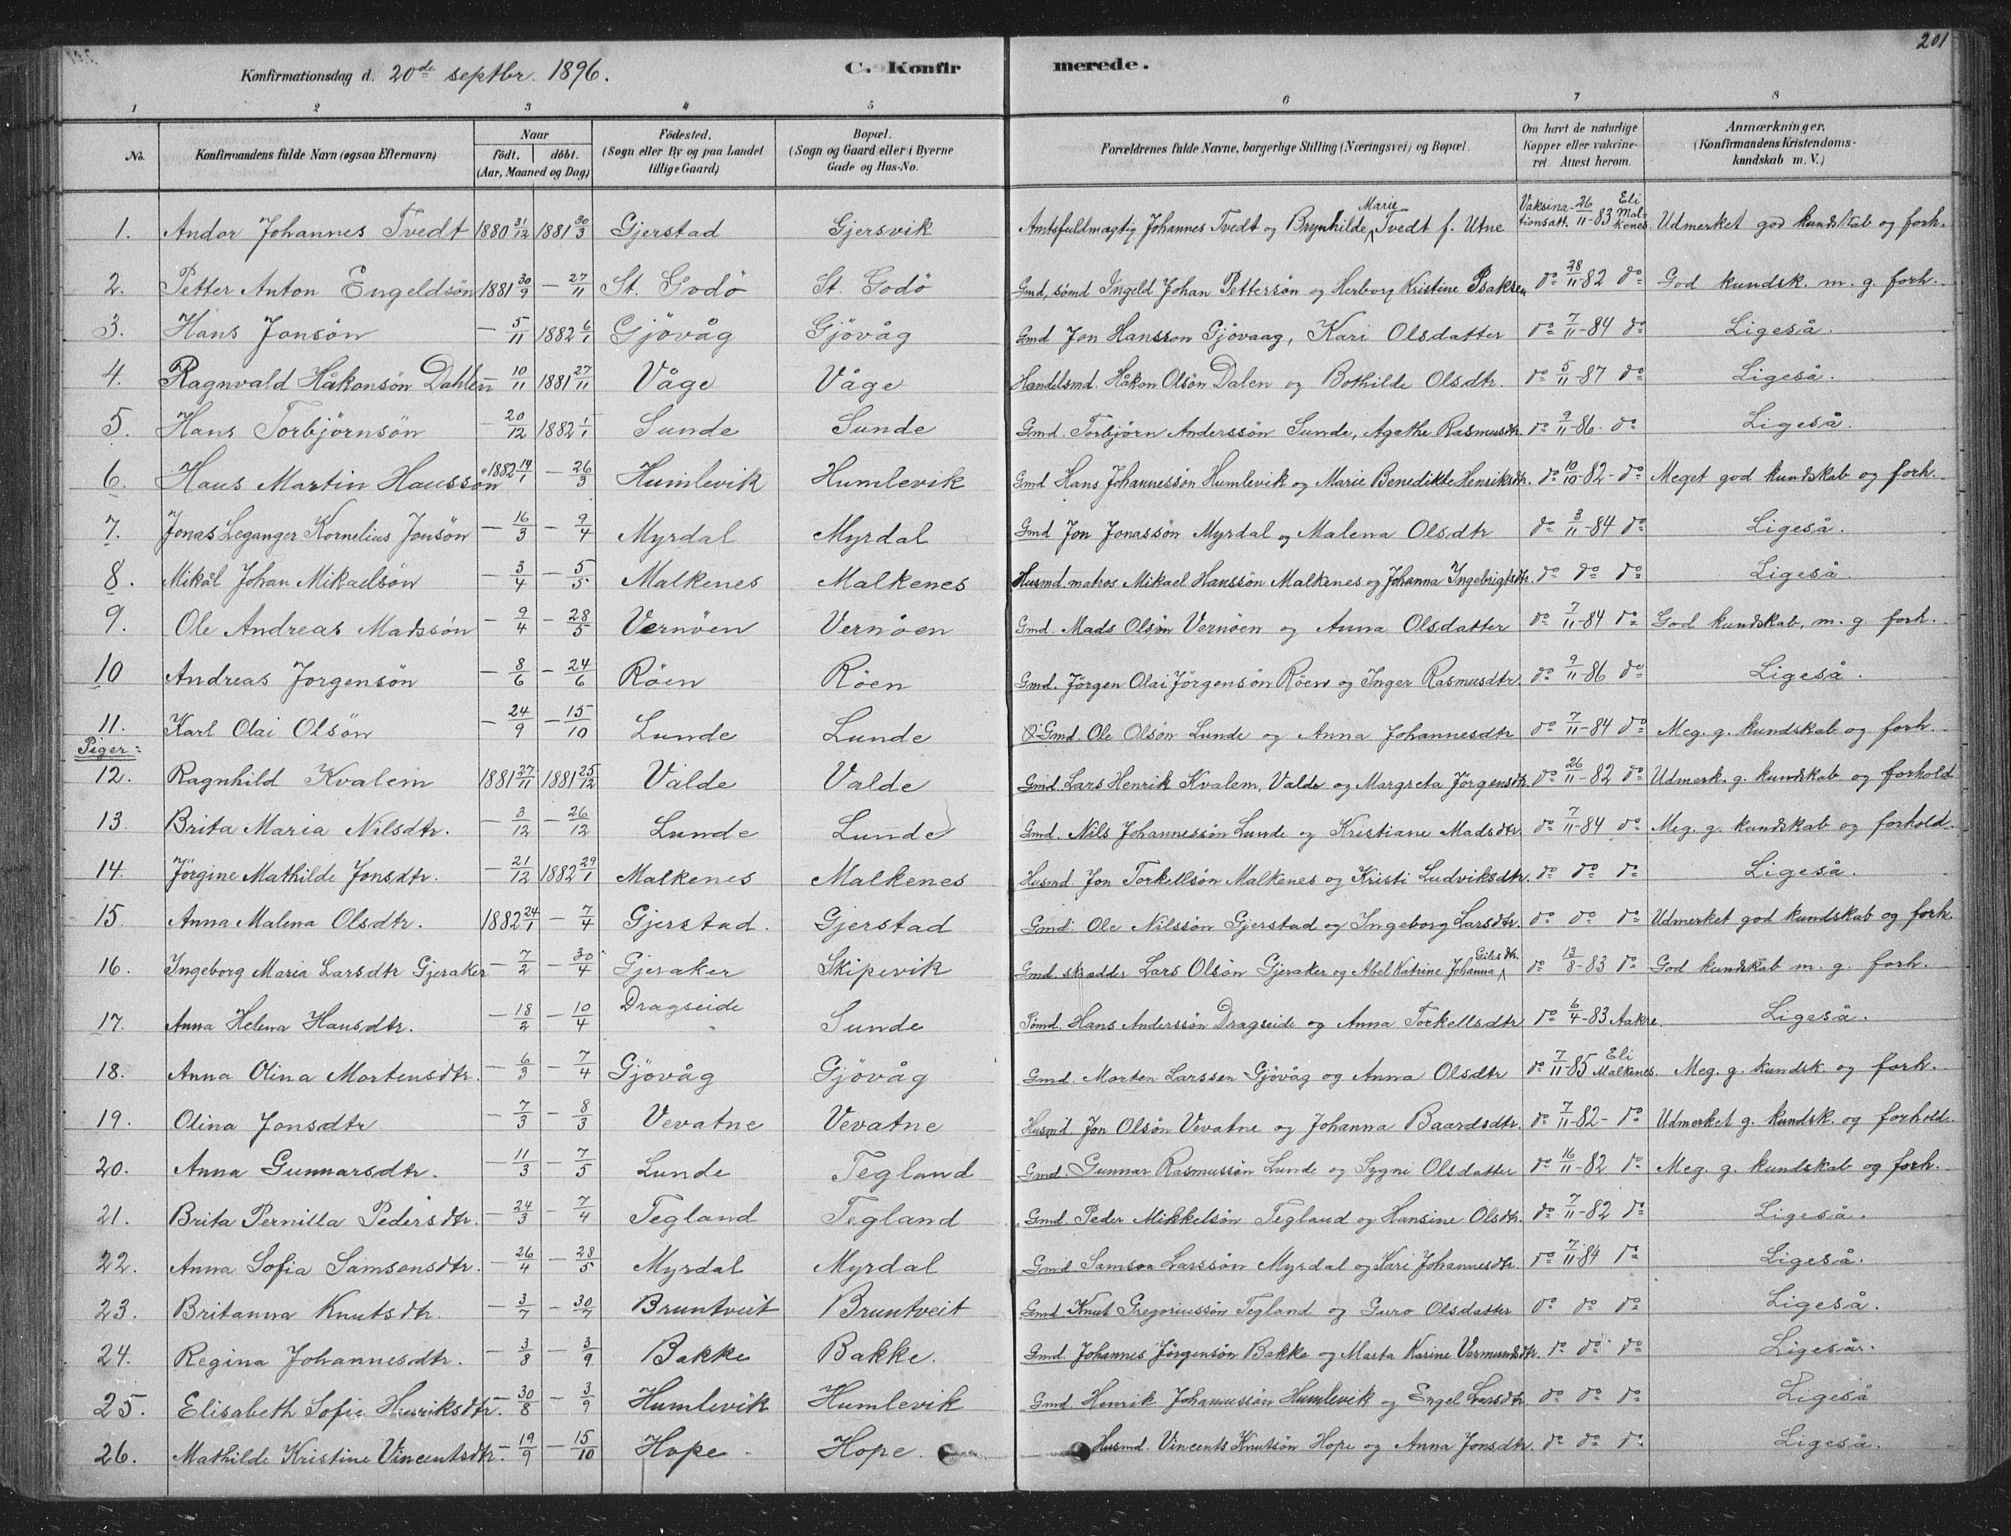 201
Konfirmationsdag d. 20de septbr. 1896. C. Konfirmerede.
1 2 3 4 5 6 7 8
No. Konfirmandens fulde Navn (ogsaa Efternavn) Naar födt. döbt. (Aar, Maaned og Dag) Födested. (Sogn eller By og paa Landet tillige Gaard) Bopæl. (Sogn og Gaard eller i Byerne Gade og Hus-No. Forældrenes fulde Navne, borgerlige Stilling (Næringsvei) og Bopæl. Om havt de naturlige Kopper eller vakcineret. Attest herom. Anmærkninger. (Konfirmandens Kristendomskundskab m. V.)
1. Andor Johannes Tvedt 1880 31/12 1881 30/3 Gjerstad Gjersvik Amtsfuldmægtig Johannes Tvedt og Brynhilde Marie Tvedt f. Utne Vaksinationsatt. 26/11-83 Eli Malkenes Udmerket god kundskab og forh.
2. Petter Anton Engeldsön 1881 30/9 - 27/11 St. Godö St. Godö Gmd, sömd Ingeld Johan Pettersön og Herborg Kristine Isaksen do 28/11-82 do God kundsk. m. g. forh.
3. Hans Jonsön - 5/11 1882 6/1 Gjövåg Gjövåg Gmd Jon Hansson Gjövaag, Kari Olsdatter do 7/11-84 do Ligeså.
4. Ragnvald Håkonsön Dahlen - 10/11 1881 27/11 Våge Våge Handelsmd. Håkon Olsön Dalen og Bothilde Olsdtr. do 5/11-87 do Ligeså.
5. Hans Torbjörnsön - 20/12 1882 1/1 Sunde Sunde Gmd. Torbjörn Anderssön Sunde, Agathe Rasmusdtr. do 9/11-86- do Ligeså.
6. Hans Martin Hanssön 1882 14/1 - 26/3 Humlevik Humlevik Gmd Hans Johannessön Humlevik og Marie Benedikte Henriksdtr. do 10/10-82- do Meget god kundskab og forh.
7. Jonas Leganger Kornelius Jonsön - 16/3 - 9/4 Myrdal Myrdal Gmd Jon Jonassön Myrdal og Malena Olsdtr do 3/11-84 do Ligeså.
8. Mikål Johan Mikaelsön - 3/4 - 5/5 Malkenes Malkenes Husmd. matros Mikael Hanssön Malkenes og Johanna Ingebrigtsdtr. do do do Ligeså.
9. Ole Andreas Madssön - 9/4 - 28/5 Vernöen Vernöen Gmd. Mads Olsön Vernöen og Anna Olsdatter do 7/11-84 do God kundskab, m. g. forh.
10 Andreas Jörgensön - 8/6 - 24/6 Röen Röen Gmd. Jörgen Olai Jörgensön Röen og Inger Rasmusdtr. do 9/11-86 do Ligeså.
11. Karl Olai Olsön - 24/9 - 15/10 Lunde Lunde Gmd. Ole Olsön Lunde og Anna Johannesdtr do 7/11-84 do Meg. g. kundskab og forh.
Piger:
12. Ragnhild Kvalem 1881 27/11 1881 25/12 Valde Valde Gmd. Lars Henrik Kvalem, Valde og Margreta Jörgensdtr do 26/11-82 do Udmerk. g. kundskab og forhold
13. Brita Maria Nilsdtr. - 3/12 - 26/12 Lunde Lunde Gmd. Nils Johannessön Lunde og Kristiane Madsdtr. do 7/11-84 do Meg. g. kundskab og forhold.
14. Jörgine Mathilde Jonsdtr. - 21/12 1882 29/1 Malkenes Malkenes Husmd Jon Torkellsön Malkenes og Kristi Ludviksdtr. do do do Ligeså.
15. Anna Malena Olsdtr. 1882 24/1 - 7/4 Gjerstad. Gjerstad Gmd. Ole Nilssön Gjerstad og Ingeborg Larsdtr. do do do Udmerket god kundskab og forh.
16. Ingeborg Maria Larsdtr Gjeraker - 7/2 - 30/4 Gjeraker Skipevik Gmd. skrædder Lars Olsön Gjeraker og Abel Katrine Johanna Gilesdtr. do 13/8-83 do God kundskab m. g. forh.
17. Anna Helena Hansdtr. - 18/2 - 10/4 Dragseide Sunde Sömd. Hans Anderssön Dragseide og Anna Torkellsdtr do 6/4-83 Aakre. Ligeså.
18. Anna Olina Mortensdtr. - 6/3 - 7/4 Gjövåg Gjövåg Gmd. Morten Larssen Gjövåg og Anna Olsdtr do 7/11-85 Eli Malkenes. Meg. g. kundsk. og forh.
19. Olina Jonsdtr - 7/3 - 8/3 Vevatne Vevatne Husmd Jon Olsön Vevatne og Johanna Baardsdtr. do 7/11-82- do Udmerket g. kundsk. og forhold.
20. Anna Gunnarsdtr. - 11/3 - 7/5 Lunde Tegland Gmd. Gunnar Rasmussön Lunde og Sygni Olsdatter do 16/11-82 do Meg. g. kundskab og forh.
21. Brita Pernilla Pedersdtr. - 24/3 - 7/4 Tegland Tegland Gmd. Peder Mikkelsön Tegland og Hansine Olsdtr. do 7/11-82 do Ligeså.
22. Anna Sofia Samsonsdtr. - 26/4 - 28/5 Myrdal Myrdal Gmd Samson Larssön Myrdal og Kari Johannesdtr. do 7/11-84 do Ligeså.
23. Britanna Knutsdtr. - 3/7 - 30/7 Bruntveit Bruntveit Gmd Knut Gregoriussön Tegland og Guro Olsdatter do do do Ligeså.
24. Regina Johannesdtr. - 3/8 - 3/9 Bakke Bakke. Gmd. Johannes Jörgensön Bakke og Marta Karine Vermundsdtr. do do do Ligesår.
25. Elisabeth Sofie Henriksdtr. - 30/8 - 3/9 Humlevik Humlevik Gmd Henrik Johannessön Humlevik og Engel Larsdtr do do do Ligeså
26. Mathilde Kristine Vincentsdtr. - 19/9 - 15/10 Hope. Hope. Husmd. Vincents Knutsön Hope og Anna Jonsdtr. do do do Ligeså.